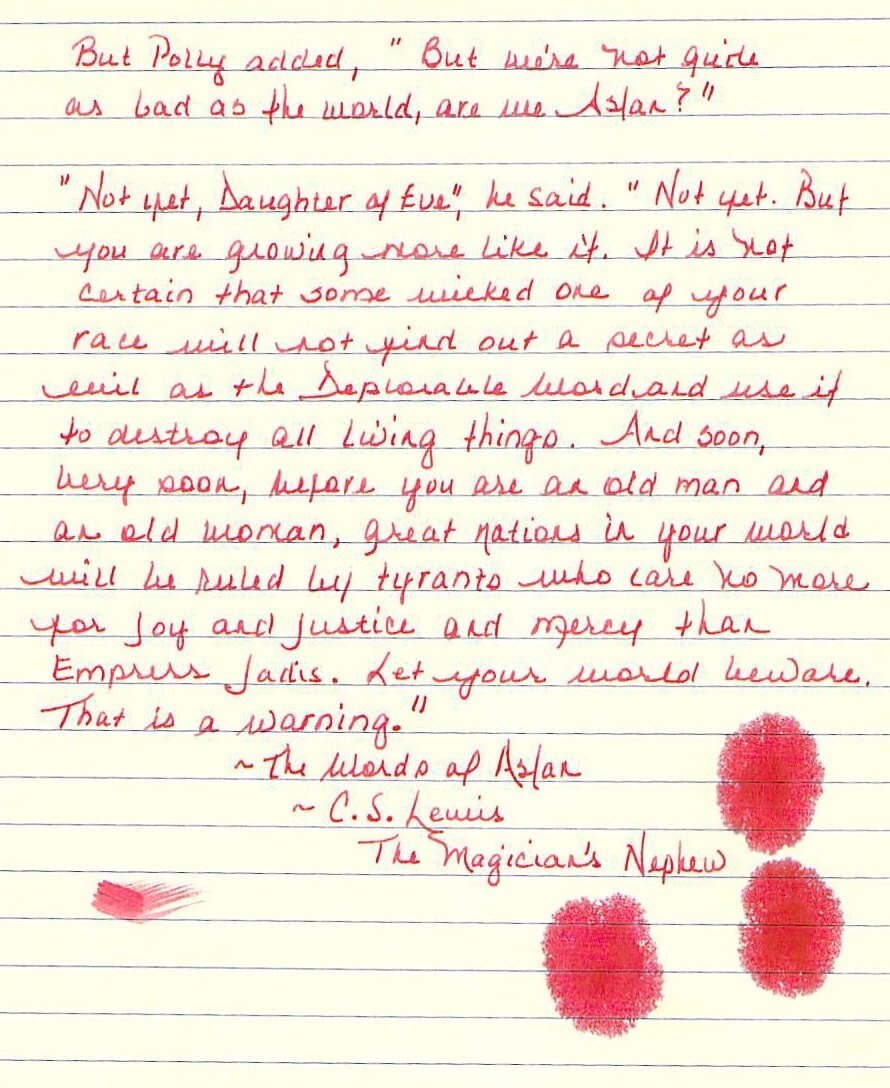 But Polly added, "But we're not quite
as bad as the world, are we Aslan?"
"Not yet, Daughter of Eve", he said. "Not yet. But
you are growing more like it. It is not
certain that some wicked one of your
race will not find out a secret as
evil as the Deplorable Word and use it
to destroy all living things. And soon,
very soon, before you are an old man and
an old woman, great nations in your world
will be ruled by tyrants who care no more
for joy and justice and mercy than
Empress Jadis. Let your world beware.
That is a warning."
~ The Words of Aslan
~ C.S. Lewis
The Magician's Nephew